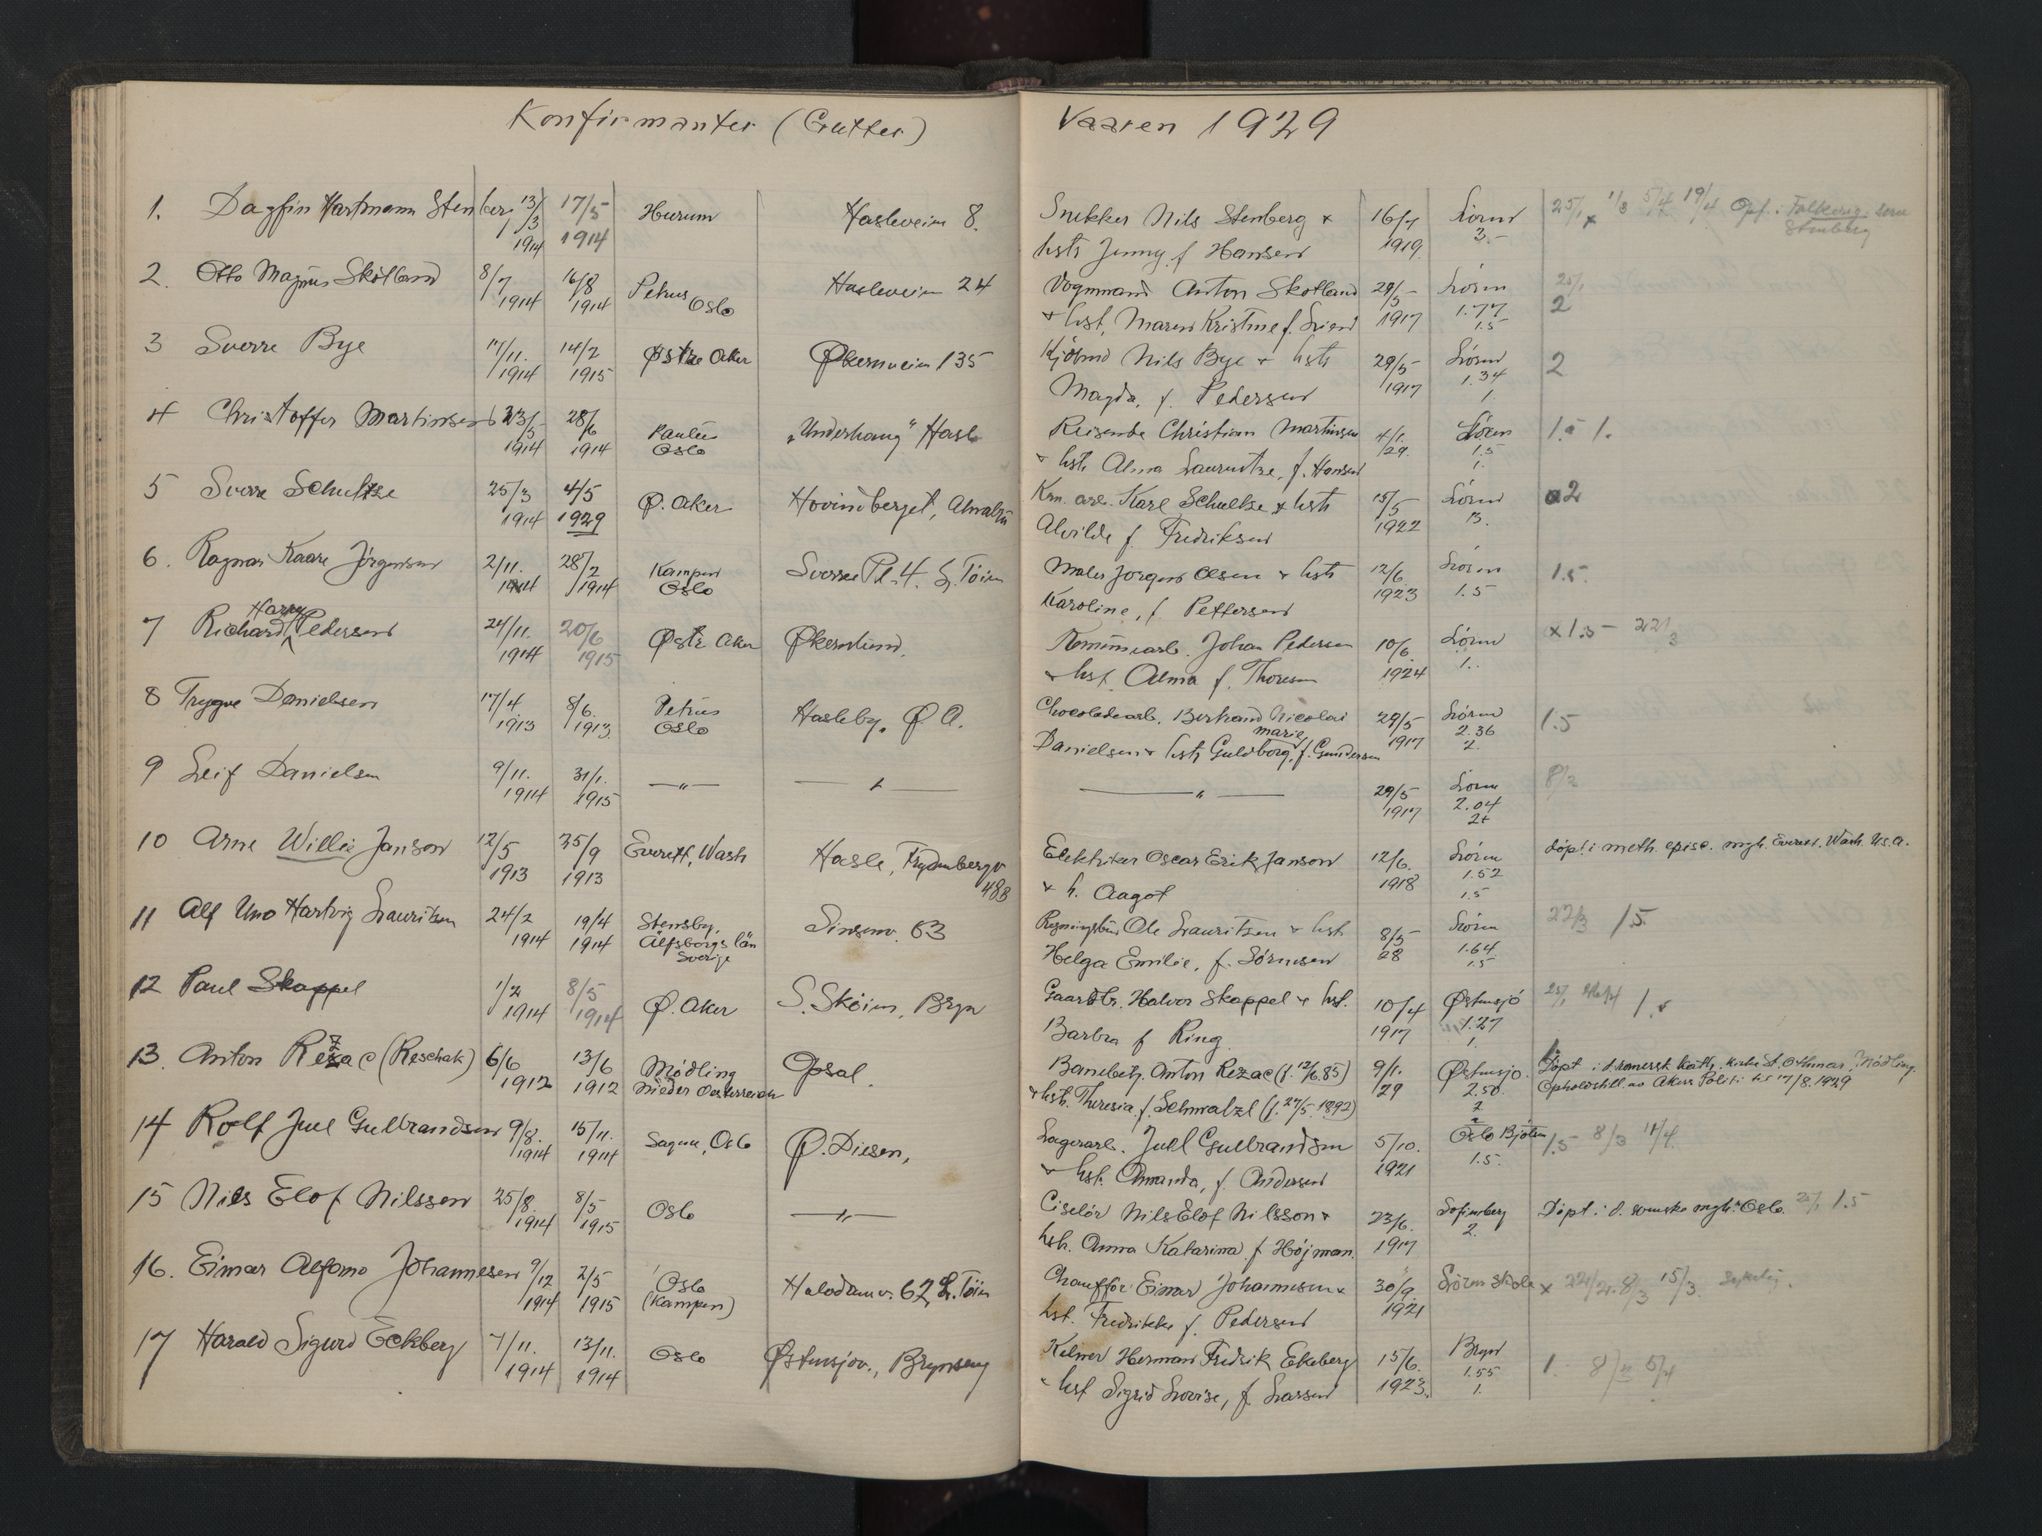 Konfirmanter (Gutter) Vaaren 1929
1. Dagfin Hartmann Stenberg 13/3 1914 17/5 1914 Hurum Hasleveien 8. Snekker Nils Stenberg & 16/7 1919 Lören 3.- 25/1 x 1/3 5/4 19/4 Opf. i Folkereg. som Stenberg
hstr Jenny f Hansen
2. Otto Magnus Skotland 8/7 1914 16/8 1914 Petrus Oslo Hasleveien 24 Vognmand Anton Skotland 29/5 1917 Lören 1.77 1.5 25/1 2
& hst. Maren Kristine f.
3 Sverre Bye 1914 14/2 1915 Østre Aker Økernveien 135 Nils Bye & hstr 29/5 1917 Lören 1.34 1 2
Magda, f. Pedersen
4 Christoffer Martinsen 23/5 1914 28/6 1914 Paulus Oslo "Underhaug" Hasle Reisende Christian Martinsen 4/1. 29. Lören 1.5 1.
& hstr Alma f. Hansen
5 Sverre Schultze 25/3 1914 4/5 1929 Ø. Aker Hovindberget, Krn. arb. Karl Schultze & hstr 15/5 1922 Lören 2
Alvilde f. Fredriksen
6. Ragnar Kaare Jörgensen 2/11. 1914 28/2 1914 Kampen Oslo Sverres Pl. 4. L. Töien Maler Jörgen Olsen & hstr 12/6. 1923 Lören 1.5 1.5.
Karoline, f. Pettersen
7 Richard Harry Pedersen 24/11. 1914 20/6 1915 Østr Aker Økernlund. Kommunearb. Johan Pedersen 10/6. 1924 Lören 1.. x 1.5 -
& hst. Alma f. Thoresen
8 Trygve Danielsen 17/4 1913 8/6. 1913. Petrus Oslo Hasleby, Ø. A. Chocoladearb. Bertrand Nicolai 29/5 1917 Lören 2.36 2. 1.5
Danielsen & hstr Guldborg Marie, f. Gundersen
9 Leif Danielsen 9/11. 1914 31/1. 1915 — " — — " — — " — 29/5 1917 Lören 2.04 2+
10 Arne Willie Janson 12/5 1913 25/9 1913 Everett, Wash Hasle, Frydenbergv 48B Elektriker Oscar Erik Janson 12/6. 1918 Lören 1.52 1.5 Döpt i meth. episc. mgh. Everett. Wash. U.S.A.
& h. Aagot
11 Alf Uno Hartvig Lauritsen 24/2 1914 19/4 1914 Stensby, Älfsborgs län Sverige Sinsenv. 63 Ole Lauritsen & hst. 8/5 28 Lören 1.64 1.5 22/3 1.5.
Helga Emilie, f. Sörensen
12 Paul Skappel 1/2 1914 8/5 1914 Ø. Aker S. Sköien, Bryn Gaardbr. Halvor Skappel & hst. 10/4 1917 Østensjö 1.27 1.
Barbra f Ring.
13. Anton Rezac (Reschak) 6/6 1912 13/6 1912 Mödling Nieder Oesterreich Opsal. Anton Rezac (f. 12/6.85) 9/1. 29 Østensjö. 2.50. 2 Döpt i d. romersk kath. kirke St. Othmar, Mödling. Opholdstill. av Akers Politi til 17/8.1929
& hst. Theresia, f. Schwalzl (f. 27/5.1892)
14 Rolf Juel Gulbrandsen 9/8. 1914 15/11. 1914 Sagene, Oslo Ø. Disen, Lagerarb. Juel Gulbrandsen 5/10. 1921 Oslo Bjölsen 1.5. 1.5 8/3 11/4.
& hst. Amanda, f. Andersen
15 Nils Elof Nilsson 25/8. 1914 8/5 1915 Oslo — " — Ciselör Nils Elof Nilsson & 23/6. 1917 Sofienberg 2. Döpt i d. svenske mgh. Oslo 1.5
hst. Anna Katarina f. Höjman.
16. Einar Alfono Johannesen 9/12 1914 2/5 1915 Oslo (Kampen) 62 L. Töien Chaufför Einar Johannesen & 30/9. 1921 Lören skole x 8/3 15/3.
hst. Fredrikke f. Pedersen
17 Harald Sigurd Eckberg 7/11. 1914 13/11. 1914 Oslo Østensjöv., Brynseng Kelner Herman Fredrik Ekeberg 15/6. 1923. Bryn 1.55 1. 1. 5/4
& hst Sigrid Lovise, f. Larsen